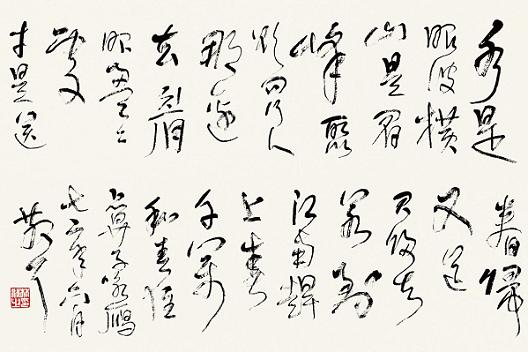 水是
眼波横
山是眉
峰聚
欲问行人
那边
去眉
眼盈盈
处
才是送
春归
又送
君归去
若到
江南赶
上春
千万
和春住
六月